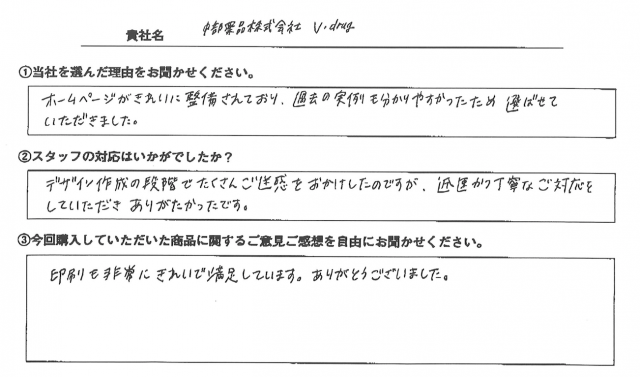 貴社名 中部薬品株式会社 V・drug
①当社を選んだ理由をお聞かせください。
ホームページがきれいに整備されており、過去の実例も分かりやすかったため 選ばせて
いただきました。
②スタッフの対応はいかがでしたか？
デザイン作成の段階でたくさんご迷惑をおかけしたのですが、迅速かつ丁寧なご対応を
していただき ありがたかったです。
③今回購入していただいた商品に関するご意見ご感想を自由にお聞かせください。
印刷も非常にきれいで満足しています。ありがとうございました。